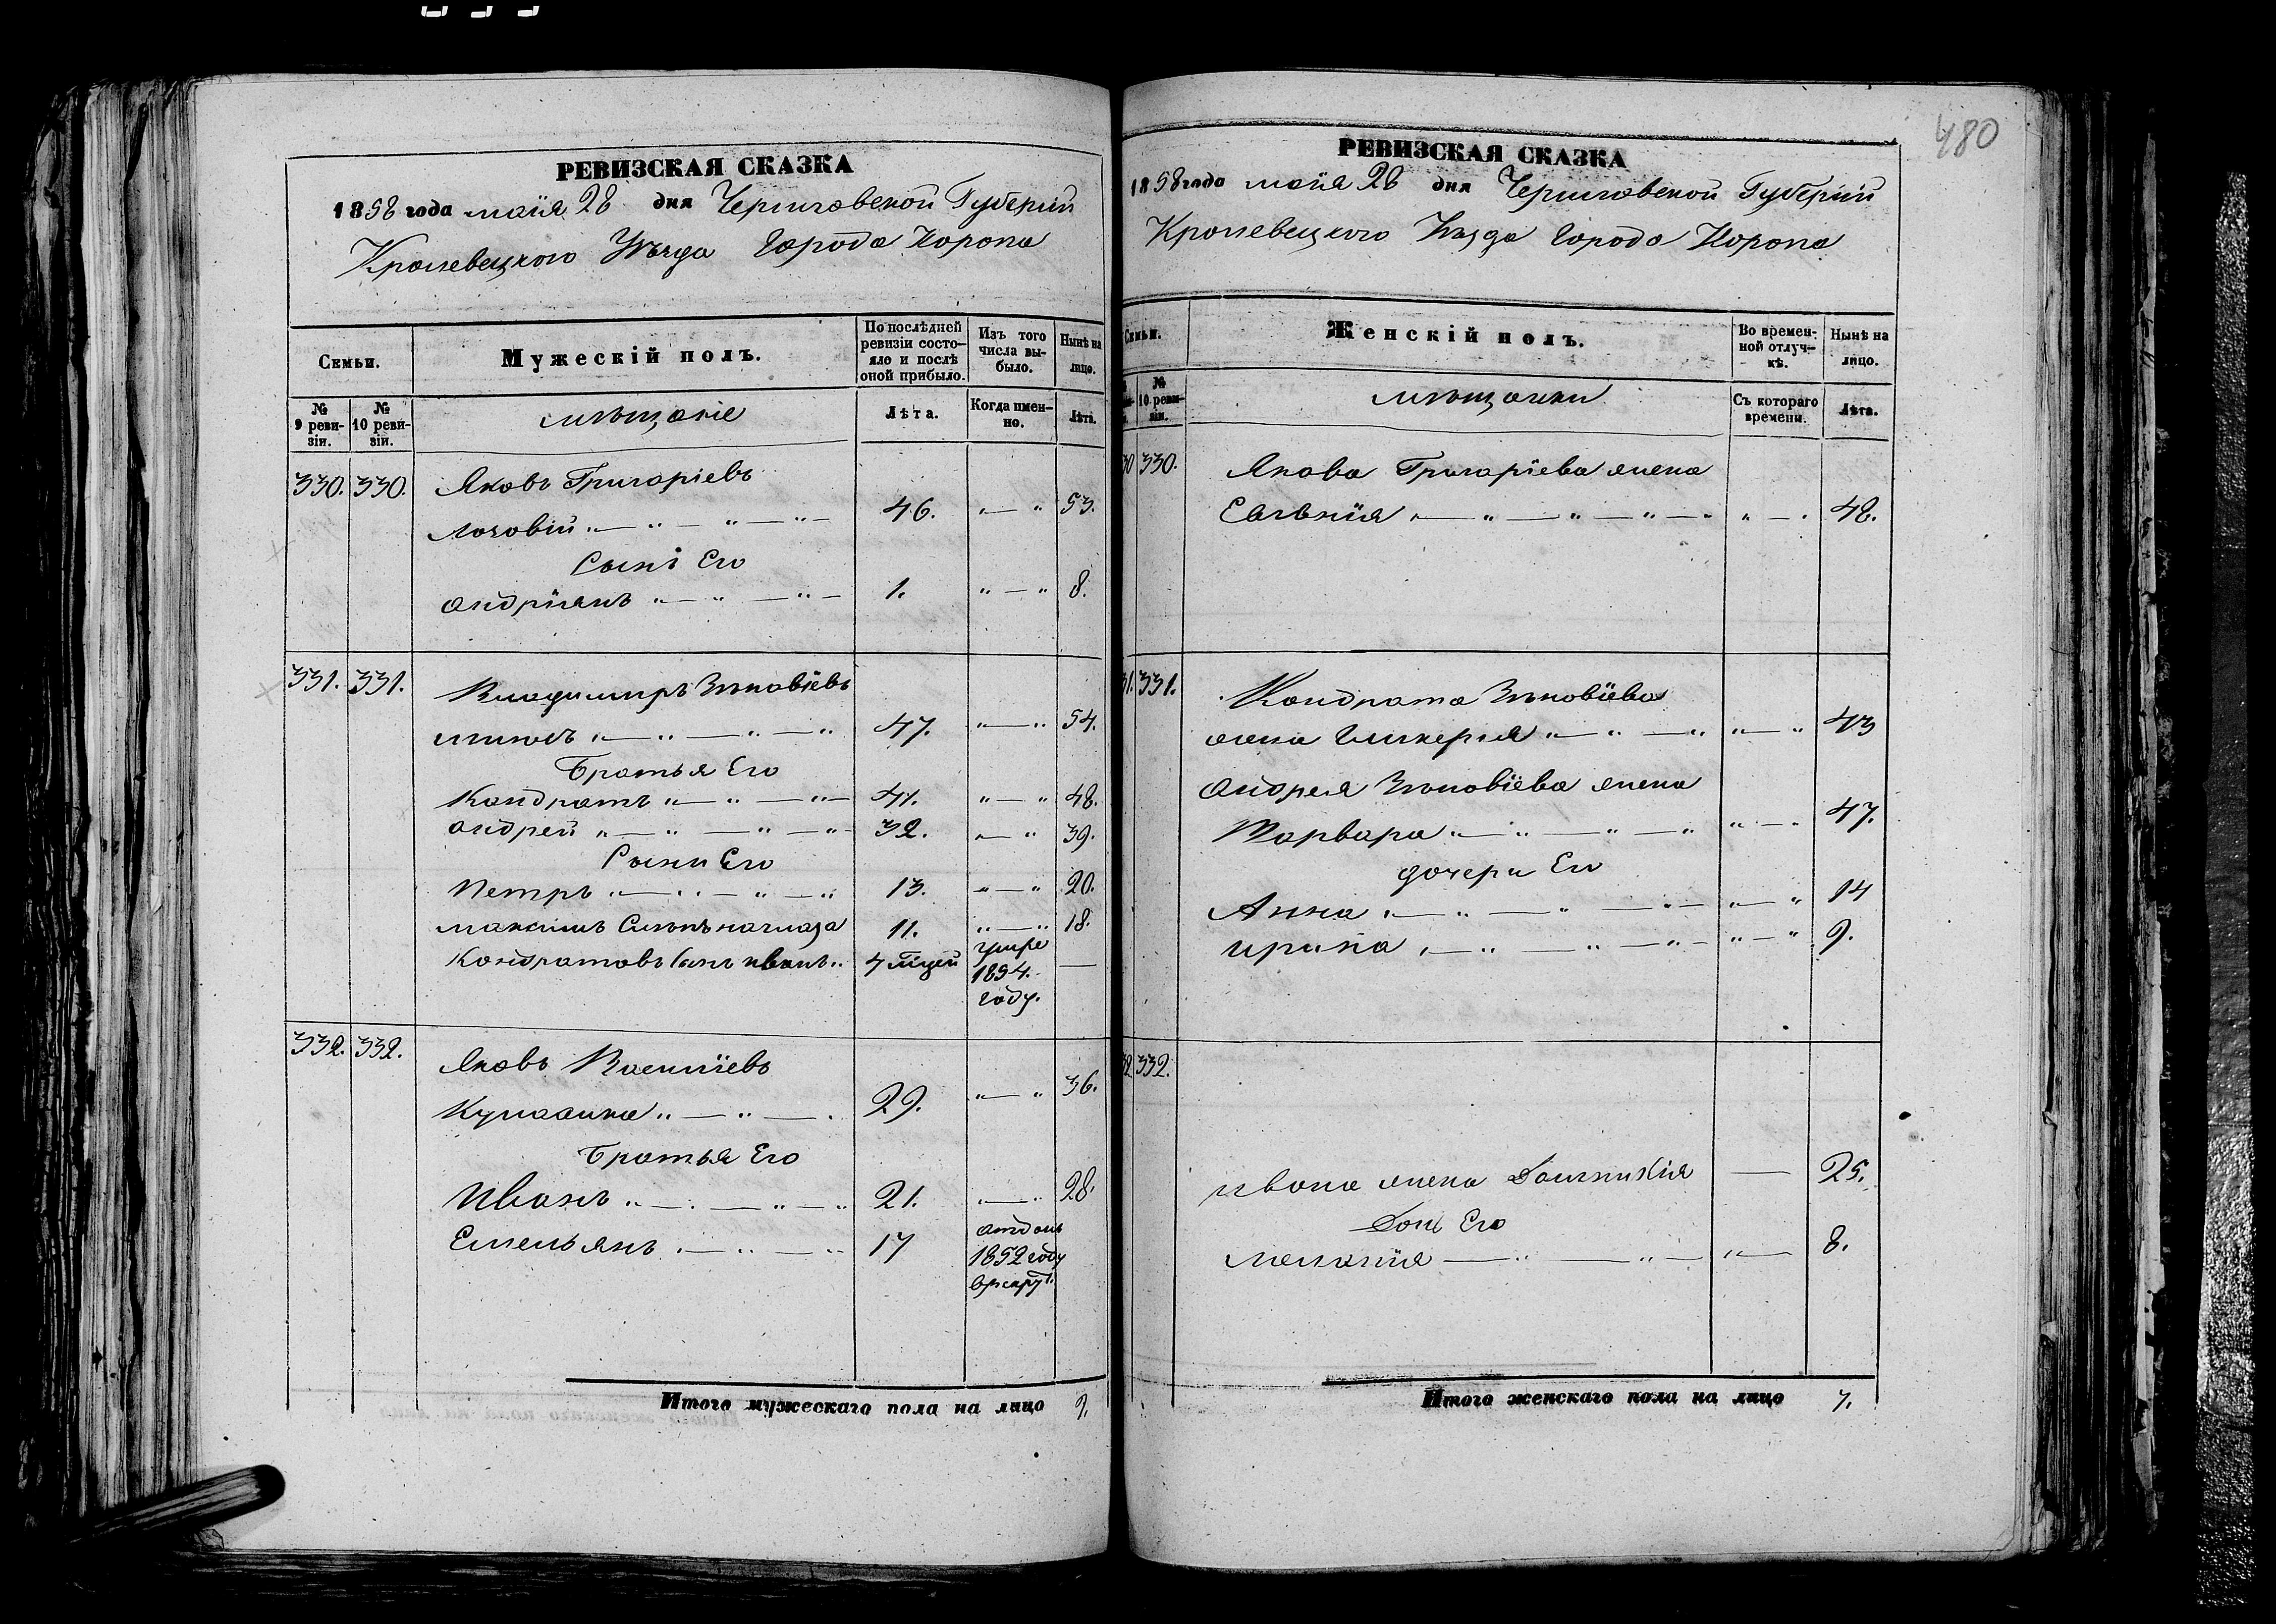 480
РЕВИЗСКАЯ СКАЗКА
1858 года маія 28 дня Черниговской Губерніи
Кролевецкого Уѣзда Города Коропа
Семьи.
Мужескій полъ.
По послѣдней ревизіи состояло и послѣ оной прибыло.
Изъ того числа выбыло.
Нынѣ на лицо.
№ 9 ревизіи.
№ 10 ревизіи.
мѣщане
Лѣта.
Когда именно.
Лѣта.
330. 330. Яковъ Григоріевъ
46. 53.
Сынъ Его
Андріянъ 1. 8.
331. 331. Владимиръ Зѣновіевъ
47. 54.
Братья Его
Кондратъ 41. 48.
Андрей 32. 39.
Сыни Его
Петръ 13. 20.
Максимъ 11. 18.
Кондратовъ Сынъ Иванъ 1854. году.
332. 332. Яковъ Василіевъ
29. 36.
Братья Его
Иванъ 21. 28.
Емельянъ 17 отданъ
1852 году
в рекрут.
Итого мужескаго пола на лицо 9.
РЕВИЗСКАЯ СКАЗКА
1858 года маія 28 дня Черниговской Губерніи
Кролевецкого Уѣзда Города Коропа
Семьи.
Женскій полъ.
Во временной отлучкѣ.
Нынѣ на лицо.
№ 10 ревизіи.
мѣщанки
Съ котораго времени.
Лѣта.
330. Якова Григоріева жена
Евгенія 48.
331. Кондрата Зѣновіева
жена Гликерія 43
Андрея Зѣновіева жена
Варвара 47.
дочери Его
Анна 14
Ирина 9.
332.
Ивана жена 25.
Дочь Его
Меланія 8.
Итого женскаго пола на лицо 7.